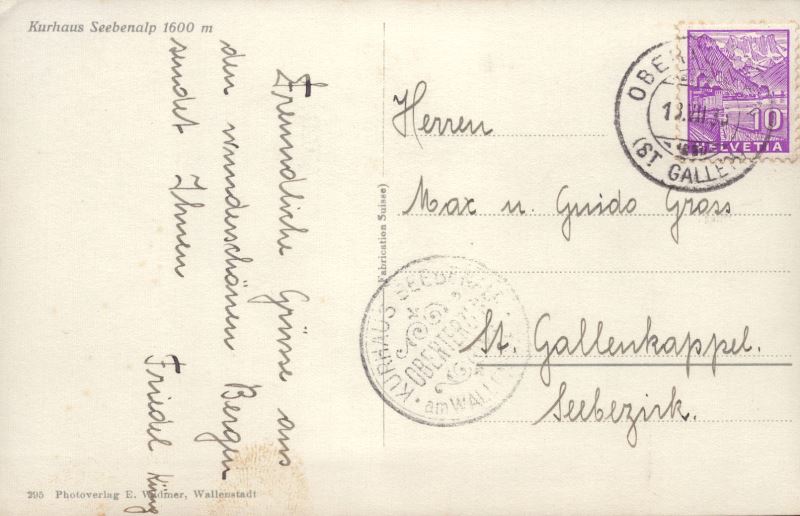 Kurhaus Seebenalp 1600 m
Freundliche Grüsse aus
den wunderschönen Bergen
sendet Ihnen
Friedel
295 Photoverlag E. Widmer, Wallenstadt
Fabrication Suisse)
Herren
Max u. Guido Gross
St. Gallenkappel.
Seebezirk.
10
HELVETIA
(ST GALLEN)
KURHAUS SEEBENALP
OBERTERZEN
am WALLEN